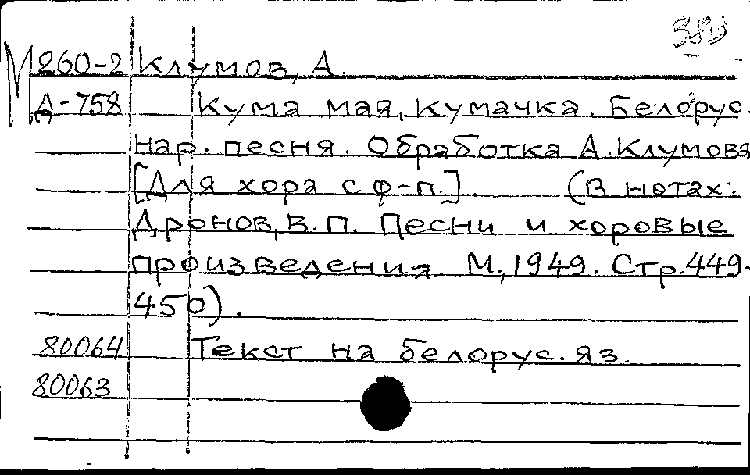 М 260-2 Клумов, А.
Д-758 Кума мая, кумачка. Белорус.
нар. песня. Обработка А. Клумова
[Для хора с ф-п.]. (В нотах:
Дронов, В.П. Песни и хоровые
произведения. М., 1949. Стр. 449-
450).
80064 Текст на белорус. яз.
80063